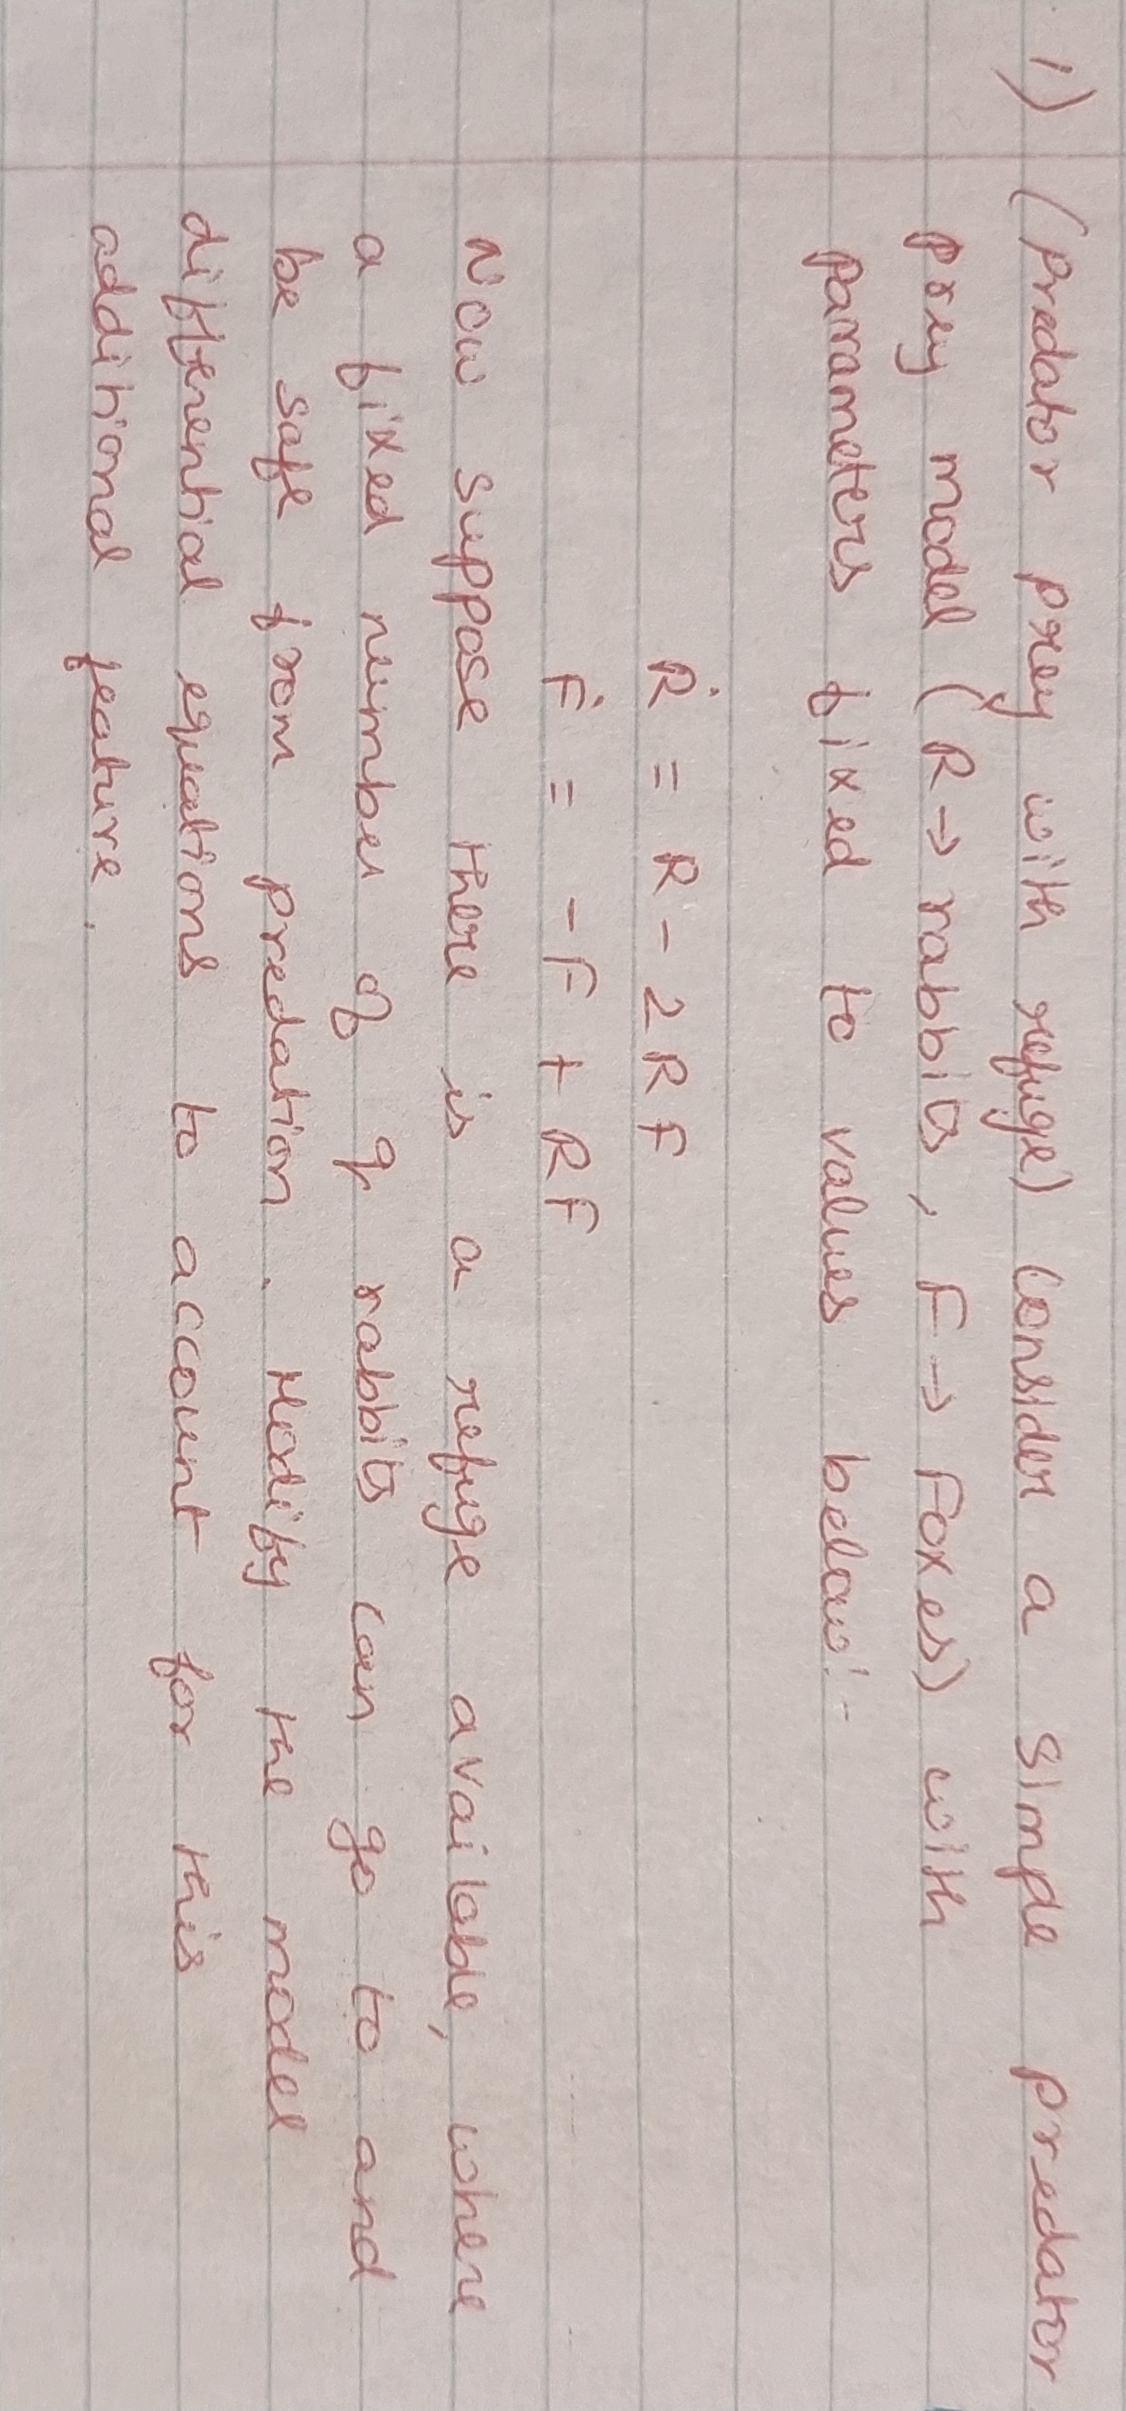 1) (predator prey with refuge) Consider a simple predator
prey model (R → rabbits, F → Foxes) with
parameters fixed to values below:-
Ṙ = R - 2RF
Ḟ = -F + RF
Now suppose there is a refuge available, where
a fixed number of q rabbits can go to and
be safe from predation. Modify the model
differential equations to account for this
additional feature.